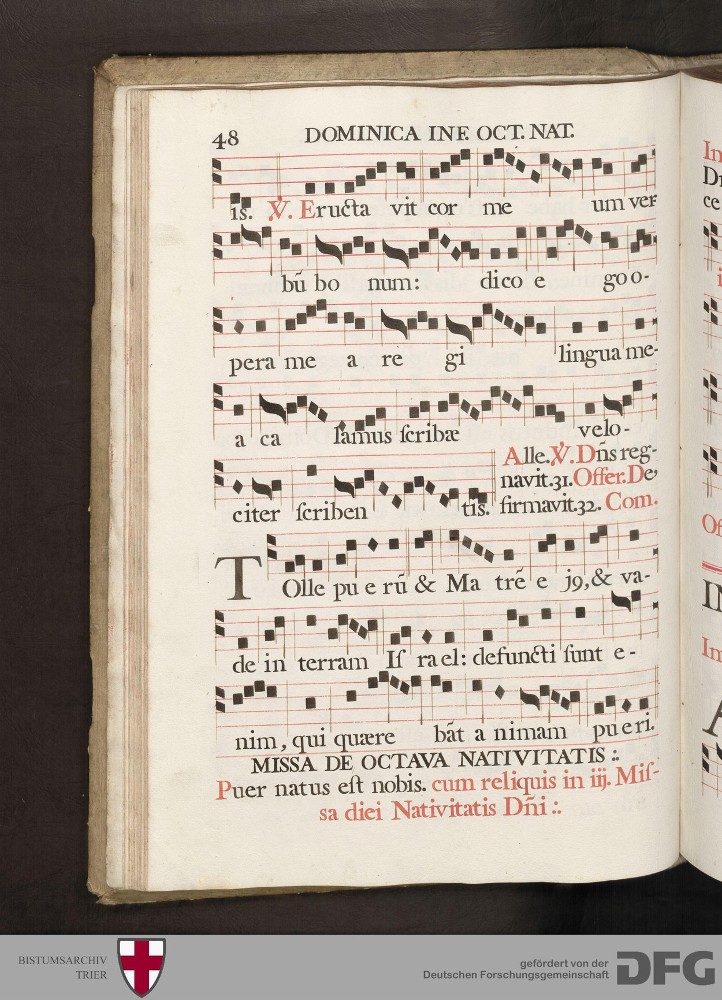 48 DOMINICA INF. OCT. NAT.
is. ℣. Eructa vit cor me um ver
bū bo num: dico e go o-
pera me a re gi lingua me-
a ca lamus scribæ velo-
citer scriben tis.
Alle. ℣. Dñs reg-
navit. 31. Offer. De
firmavit. 32. Com.
Tolle pu e rū & Ma trē e j9, & va-
de in terram Is ra el: defuncti sunt e-
nim, qui quære bāt a nimam pu e ri.
MISSA DE OCTAVA NATIVITATIS :.
Puer natus est nobis. cum reliquis in iij. Mis-
sa diei Nativitatis Dñi :.
In
ce
BISTUMSARCHIV
TRIER
gefördert von der
Deutschen Forschungsgemeinschaft
DFG